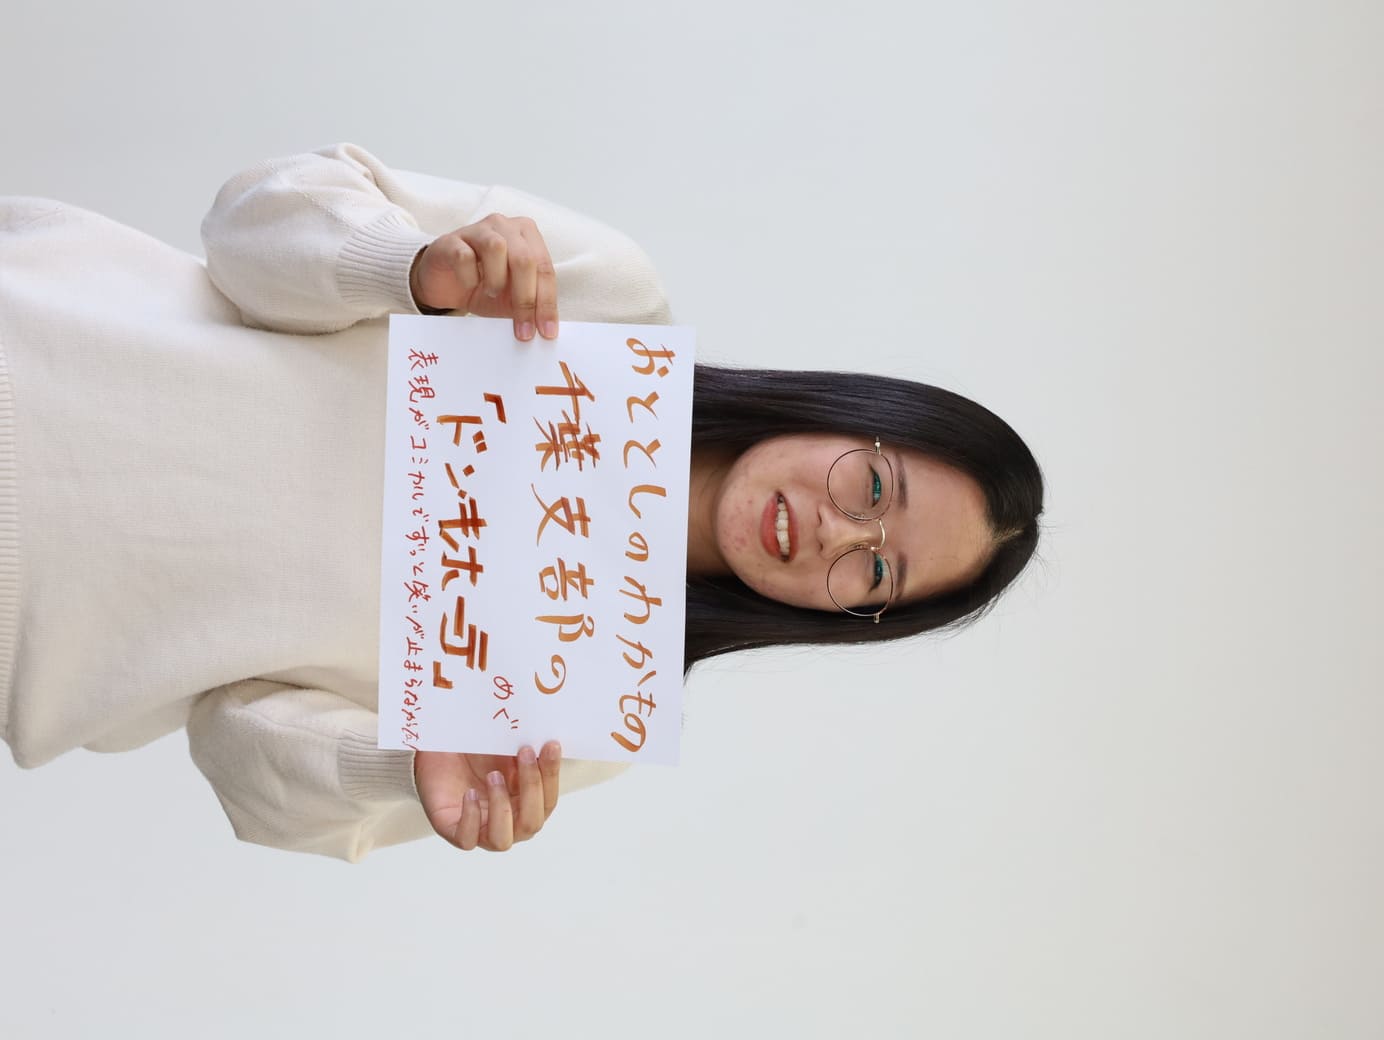 おととしのわかもの
千葉支部の
「ドンキホーテ」
めぐ
表現がコミカルでずっと笑いが止まらなかった!